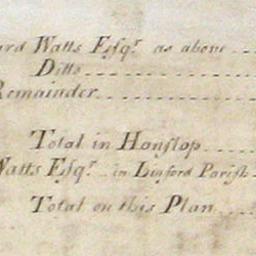 ard Watts Esqr as above
Ditto
Remainder
Total in Hanslop
Watts Esqr in Linford Parish
Total on this Plan